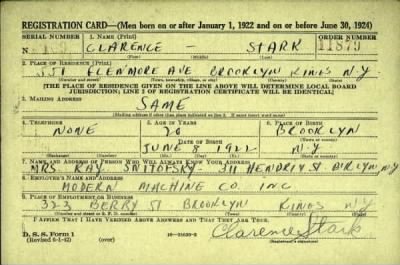 REGISTRATION CARD—(Men born on or after January 1, 1922 and on or before June 30, 1924)
SERIAL NUMBER 1. NAME (Print) ORDER NUMBER
CLARENCE - STARK 11879
(First) (Middle) (Last)
2. PLACE OF RESIDENCE (Print)
551 GLENMORE AVE BROOKLYN KINGS N.Y.
(Number and street) (Town, township, village, or city) (County) (State)
[THE PLACE OF RESIDENCE GIVEN ON THE LINE ABOVE WILL DETERMINE LOCAL BOARD
JURISDICTION; LINE 2 OF REGISTRATION CERTIFICATE WILL BE IDENTICAL]
3. MAILING ADDRESS
SAME
[Mailing address if other than place indicated on line 2. If same insert word same]
4. TELEPHONE 5. AGE IN YEARS 6. PLACE OF BIRTH
NONE 20 BROOKLYN
DATE OF BIRTH (Town or county)
JUNE 8 1922 N.Y
(Exchange) (Number) (Mo.) (Day) (Yr.) (State or country)
7. NAME AND ADDRESS OF PERSON WHO WILL ALWAYS KNOW YOUR ADDRESS
MRS. RAY SNITOFSKY - 311 HENDRIX ST B'KLYN, N.Y
8. EMPLOYER'S NAME AND ADDRESS
MODERN MACHINE CO. INC.
9. PLACE OF EMPLOYMENT OR BUSINESS
323 BERRY ST. BROOKLYN KINGS N.Y
(Number and street or R. F. D. number) (Town) (County) (State)
I AFFIRM THAT I HAVE VERIFIED ABOVE ANSWERS AND THAT THEY ARE TRUE.
D. S. S. Form 1
(Revised 6-1-42) (over) Clarence Stark
(Registrant's signature)